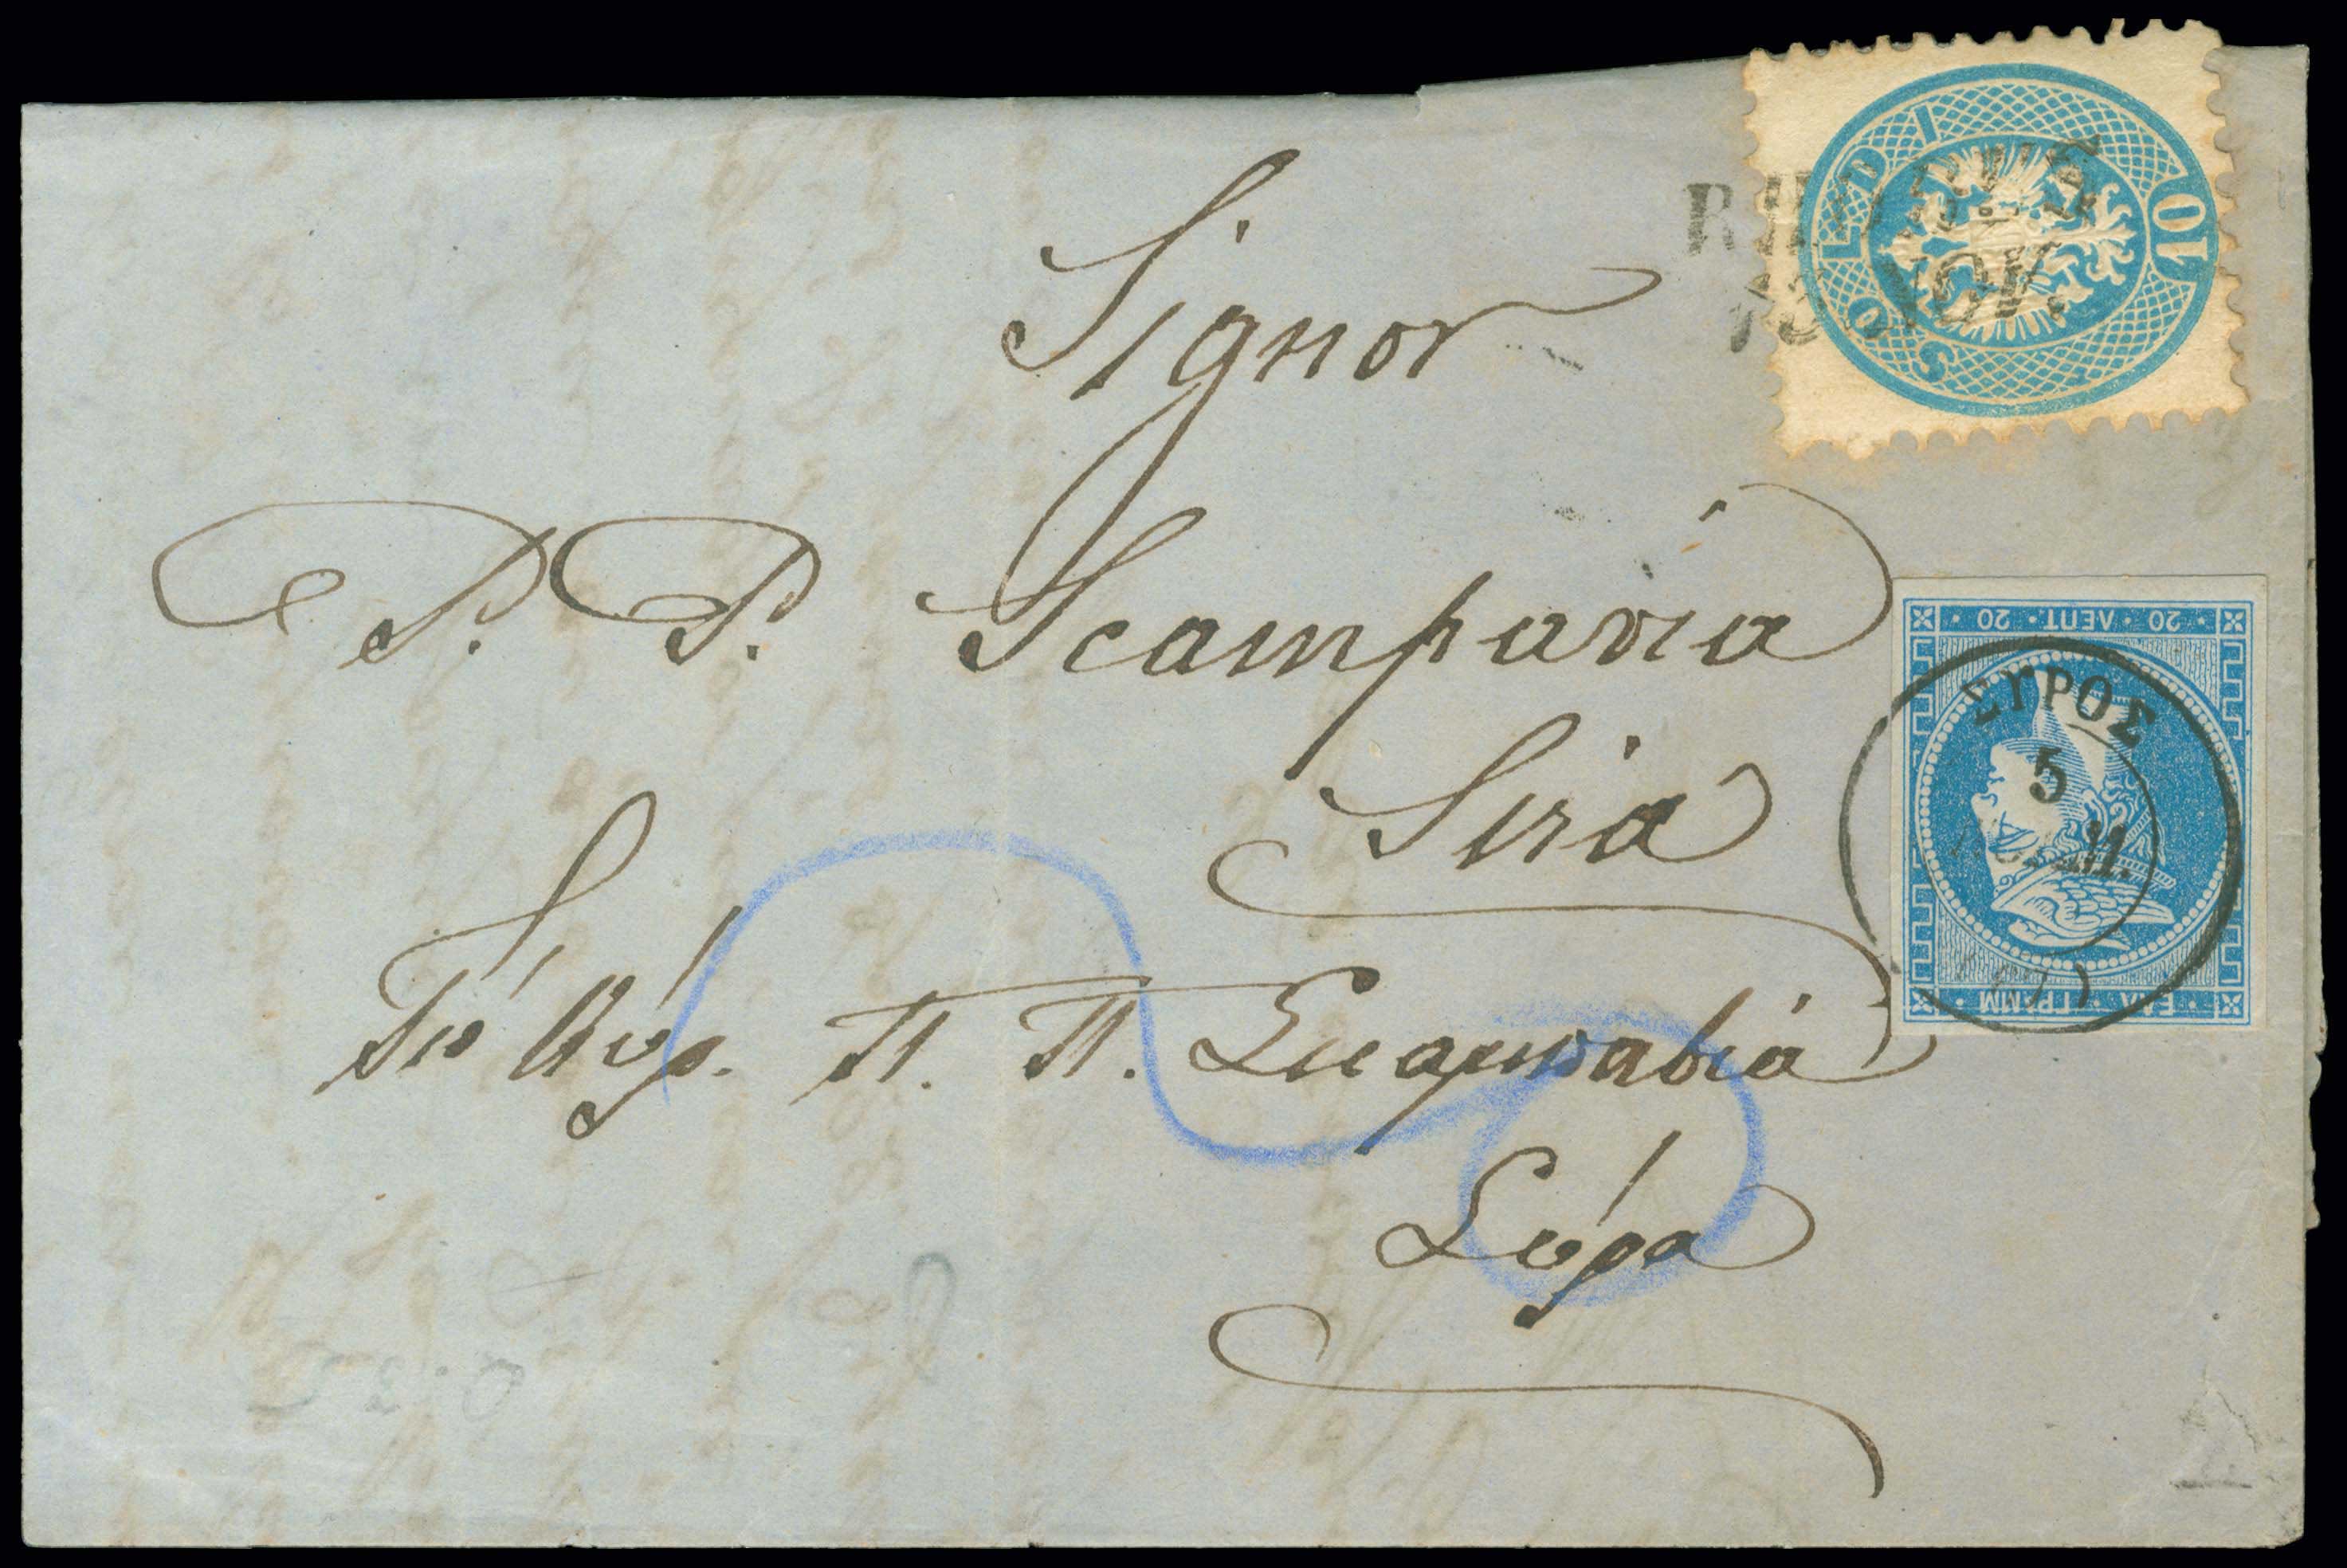 Signor
P. P. Scampavia
Sira
Τῷ Κύρ. Π. Π. Σκαμπαβιά
Σύρα
10 SOLDI
20 · ΛΕΠΤ. · 20
ΕΛΛ · ΓΡΑΜΜ
ΣΥΡΟΣ
5